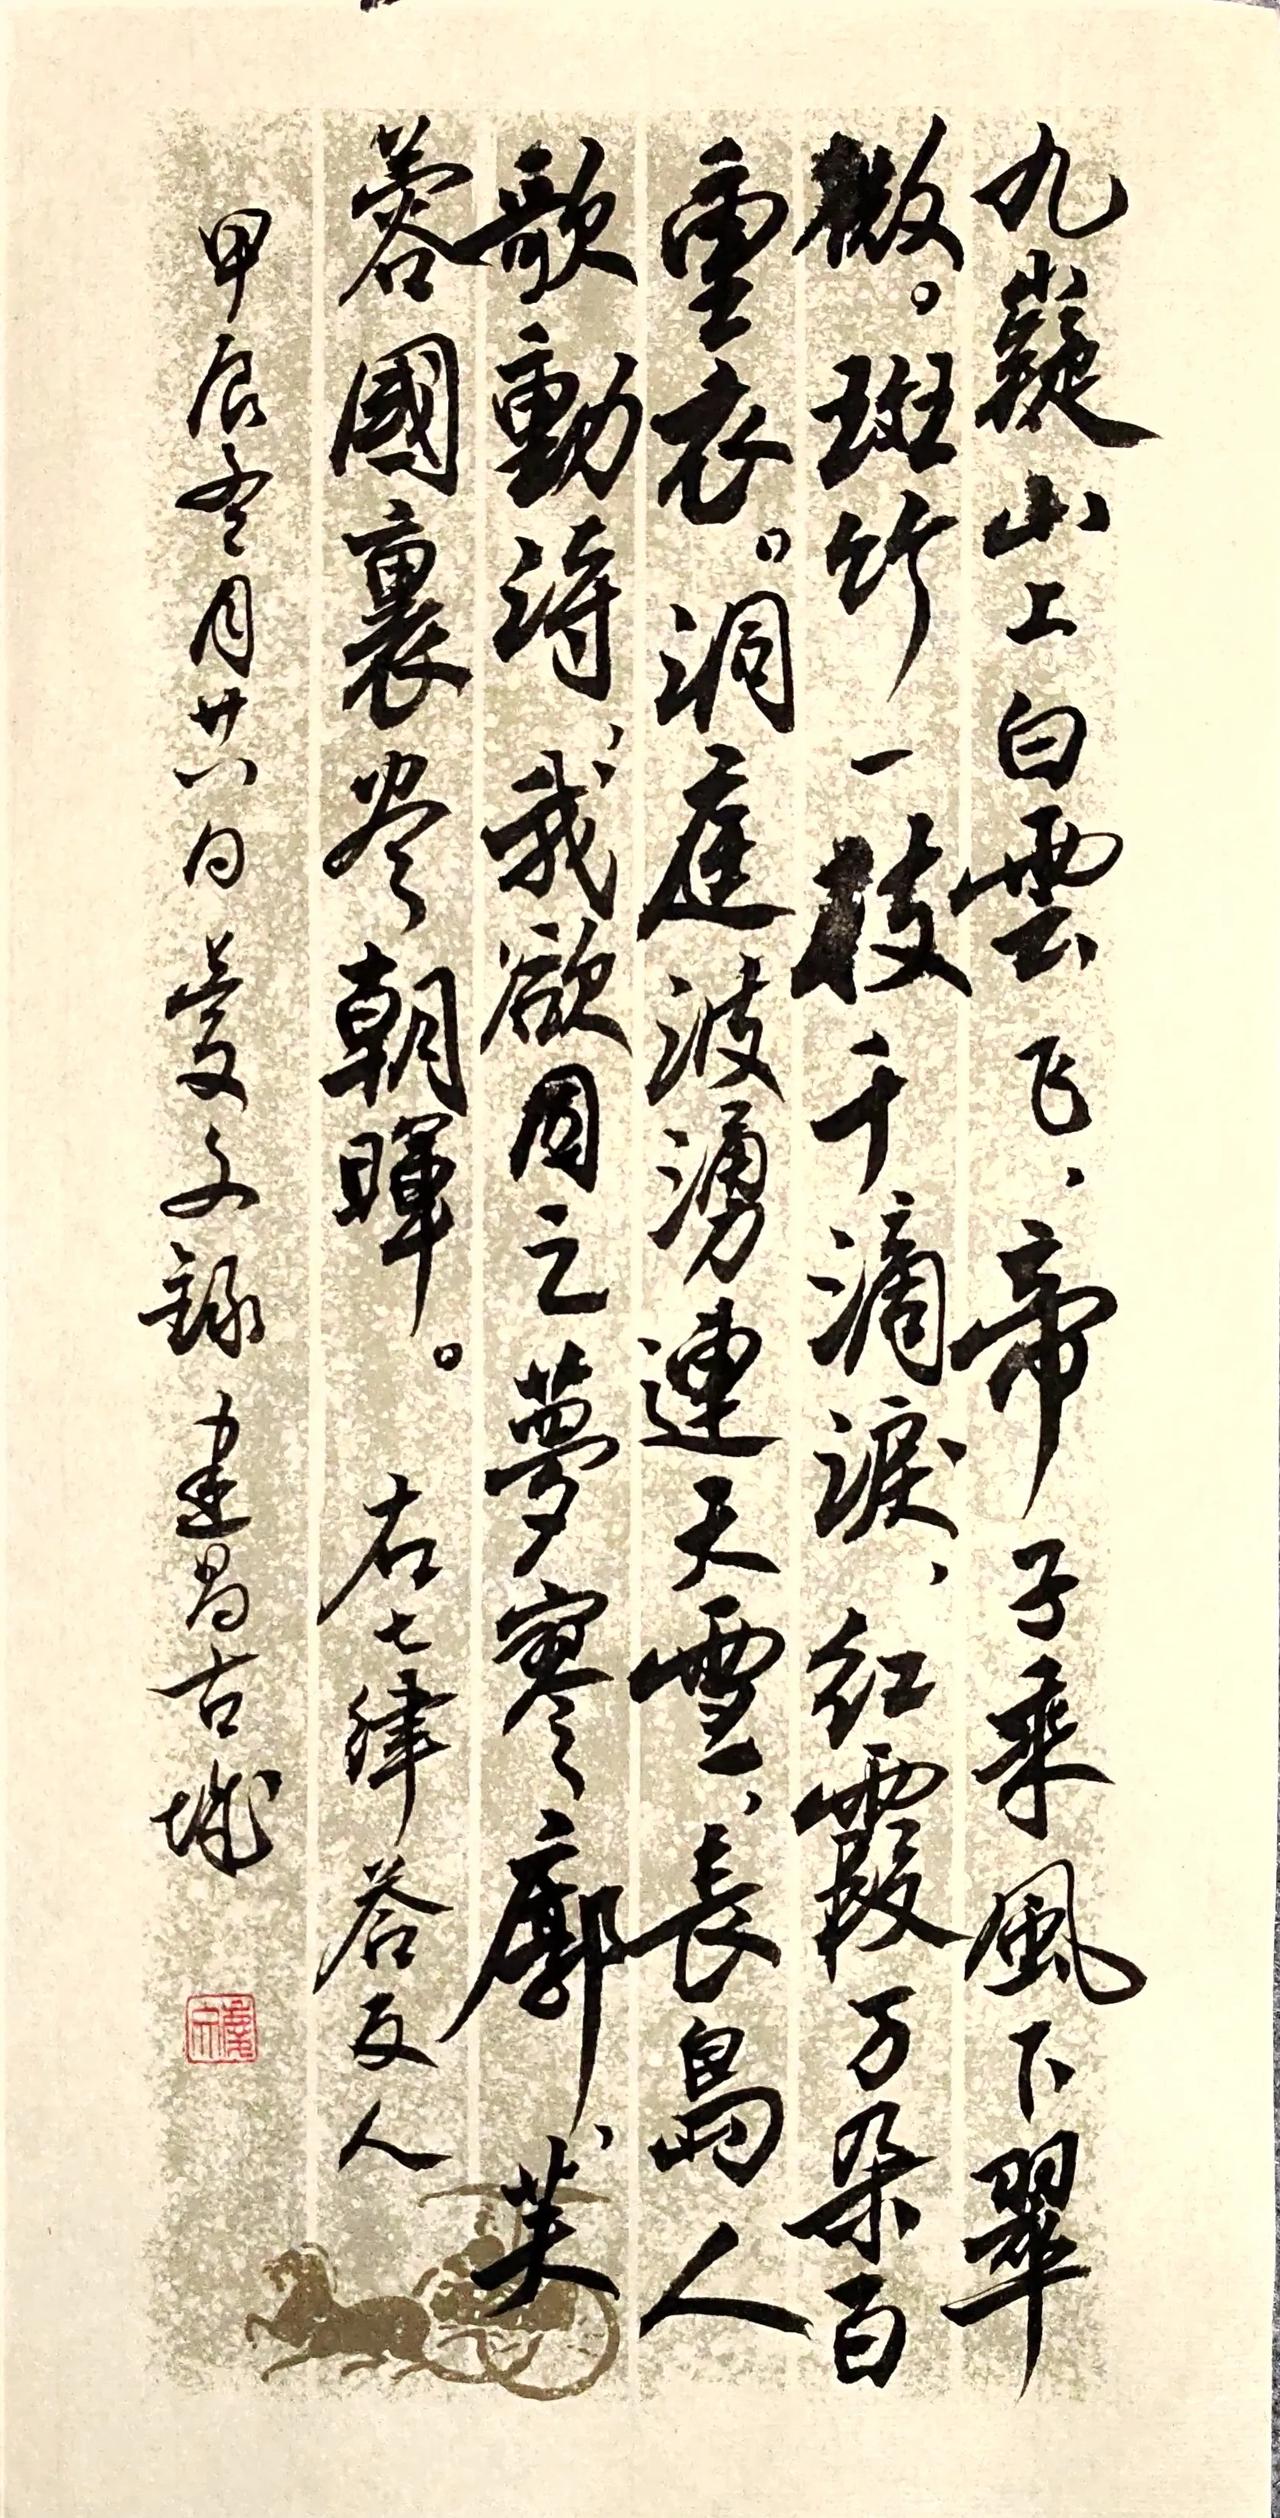 九嶷山上白雲飞，帝子乘風下翠
微。斑竹一枝千滴淚，红霞万朵百
重衣。洞庭波湧連天雪，長島人
歌動诗，我欲因之夢寥廓，芙
蓉國裏尽朝暉。右七律答友人
甲辰冬月廿八日 文録建昌古城